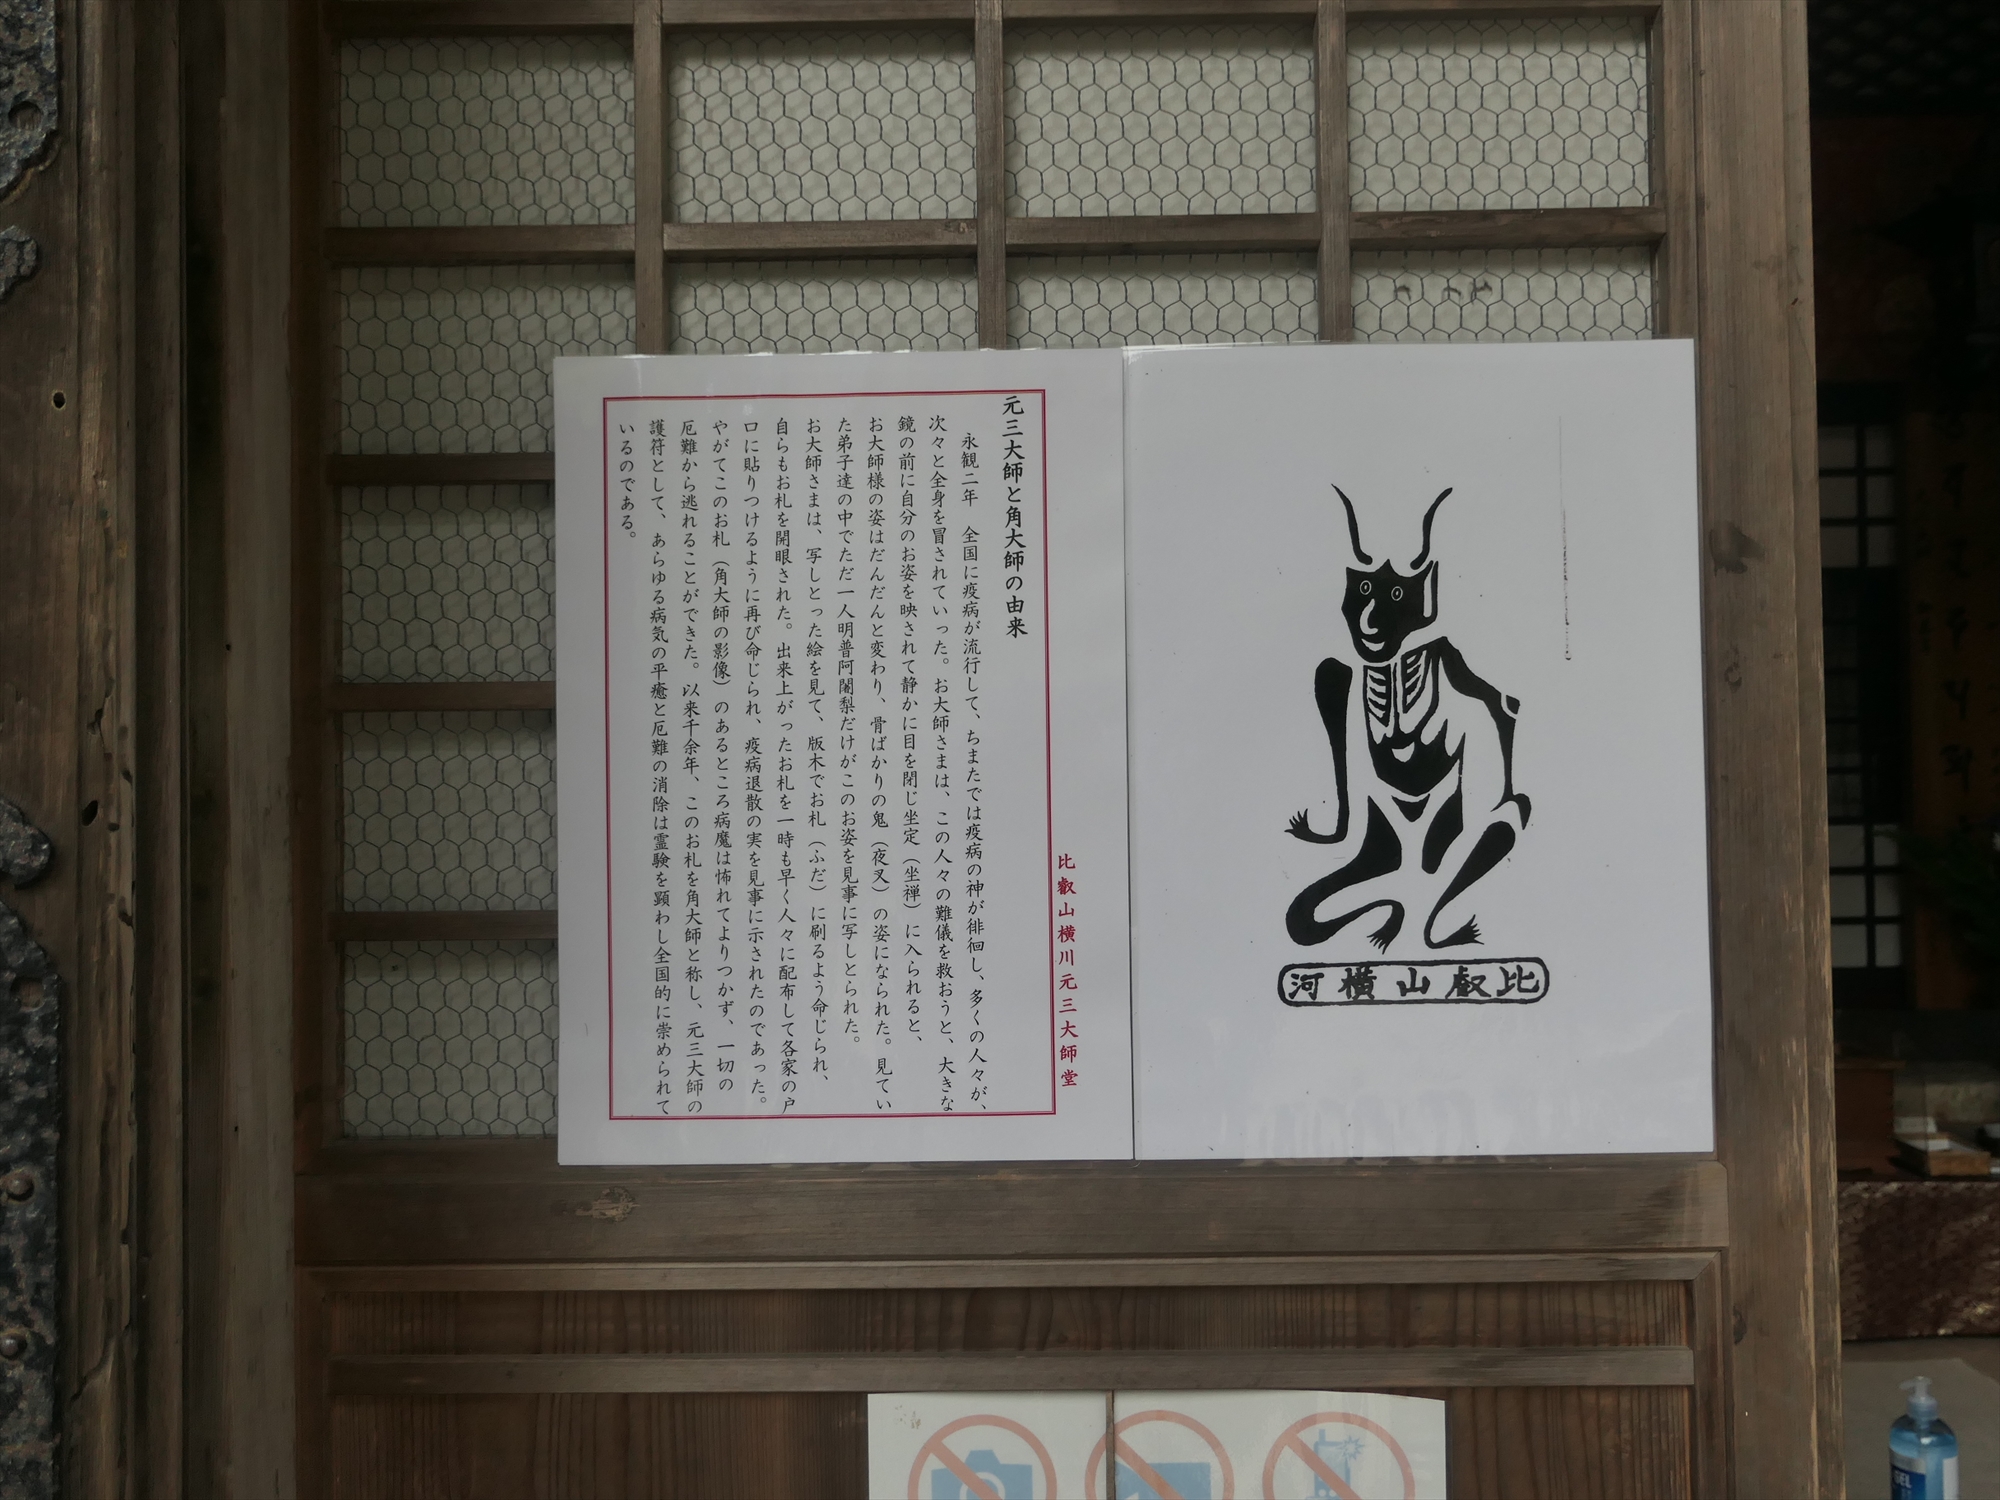 比叡山横河
比叡山横川元三大師堂
元三大師と角大師の由来
永観二年　全国に疫病が流行して、ちまたでは疫病の神が徘徊し、多くの人々が、
次々と全身を冒されていった。お大師さまは、この人々の難儀を救おうと、大きな
鏡の前に自分のお姿を映されて静かに目を閉じ坐定（坐禅）に入られると、
お大師様の姿はだんだんと変わり、骨ばかりの鬼（夜叉）の姿になられた。見てい
た弟子達の中でただ一人明普阿闍梨だけがこのお姿を見事に写しとられた。
お大師さまは、写しとった絵を見て、版木でお札（ふだ）に刷るよう命じられ、
自らもお札を開眼された。出来上がったお札を一時も早く人々に配布して各家の戸
口に貼りつけるように再び命じられ、疫病退散の実を見事に示されたのであった。
やがてこのお札（角大師の影像）のあるところ病魔は怖れてよりつかず、一切の
厄難から逃れることができた。以来千余年、このお札を角大師と称し、元三大師の
護符として、あらゆる病気の平癒と厄難の消除は霊験を顕わし全国的に崇められて
いるのである。
GEL